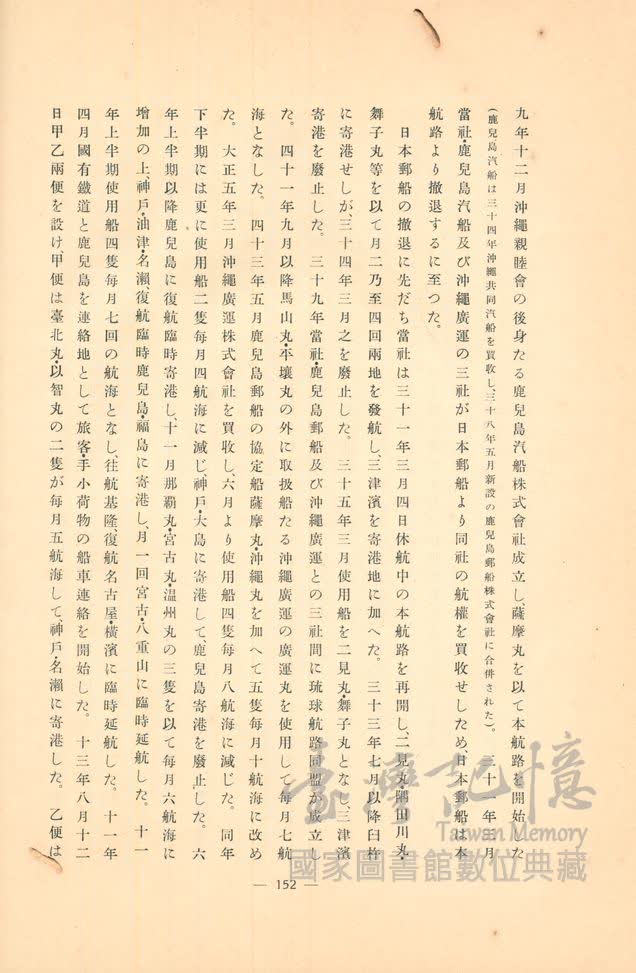 九年十二月沖繩親睦會の後身たる鹿兒島汽船株式會社成立し、薩摩丸を以て本航路を開始した
(鹿兒島汽船は三十四年沖繩共同汽船を買收し、三十八年五月新設の鹿兒島郵船株式會社に合併された)。　三十一年三月
當社・鹿兒島汽船及び沖繩廣運の三社が日本郵船より同社の航權を買收せしため、日本郵船は本
航路より撤退するに至つた。
日本郵船の撤退に先だち當社は三十一年三月四日休航中の本航路を再開し、二見丸・隅田川丸・
舞子丸等を以て月二乃至四回兩地を發航し、三津濱を寄港地に加へた。　三十三年七月以降臼杵
に寄港せしが、三十四年三月之を廢止した。　三十五年三月使用船を二見丸・舞子丸となし、三津濱
寄港を廢止した。　三十九年當社・鹿兒島郵船及び沖繩廣運との三社間に琉球航路同盟が成立し
た。　四十一年九月以降馬山丸・平壤丸の外に取扱船たる沖繩廣運の廣運丸を使用して每月七航
海となした。　四十三年五月鹿兒島郵船の協定船薩摩丸・沖繩丸を加へて五隻每月十航海に改め
た。　大正五年三月沖繩廣運株式會社を買收し、六月より使用船四隻每月八航海に減じた。　同年
下半期には更に使用船二隻每月四航海に減じ神戶・大島に寄港して、鹿兒島寄港を廢止した。　六
年上半期以降鹿兒島に復航臨時寄港し、十一月那覇丸・宮古丸・温州丸の三隻を以て每月六航海に
增加の上、神戶・油津・名瀨、復航臨時鹿兒島・福島に寄港し、月一回宮古・八重山に臨時延航した。　十一
年上半期使用船四隻每月七回の航海となし、往航基隆、復航名古屋・橫濱に臨時延航した。　十一年
四月國有鐵道と鹿兒島を連絡地として旅客・手小荷物の船車連絡を開始した。　十三年八月十二
日甲乙兩便を設け、甲便は臺北丸・以智丸の二隻が每月五航海して、神戶・名瀨に寄港した。　乙便は
— 152 —
臺灣記憶
Taiwan Memory
國家圖書館數位典藏